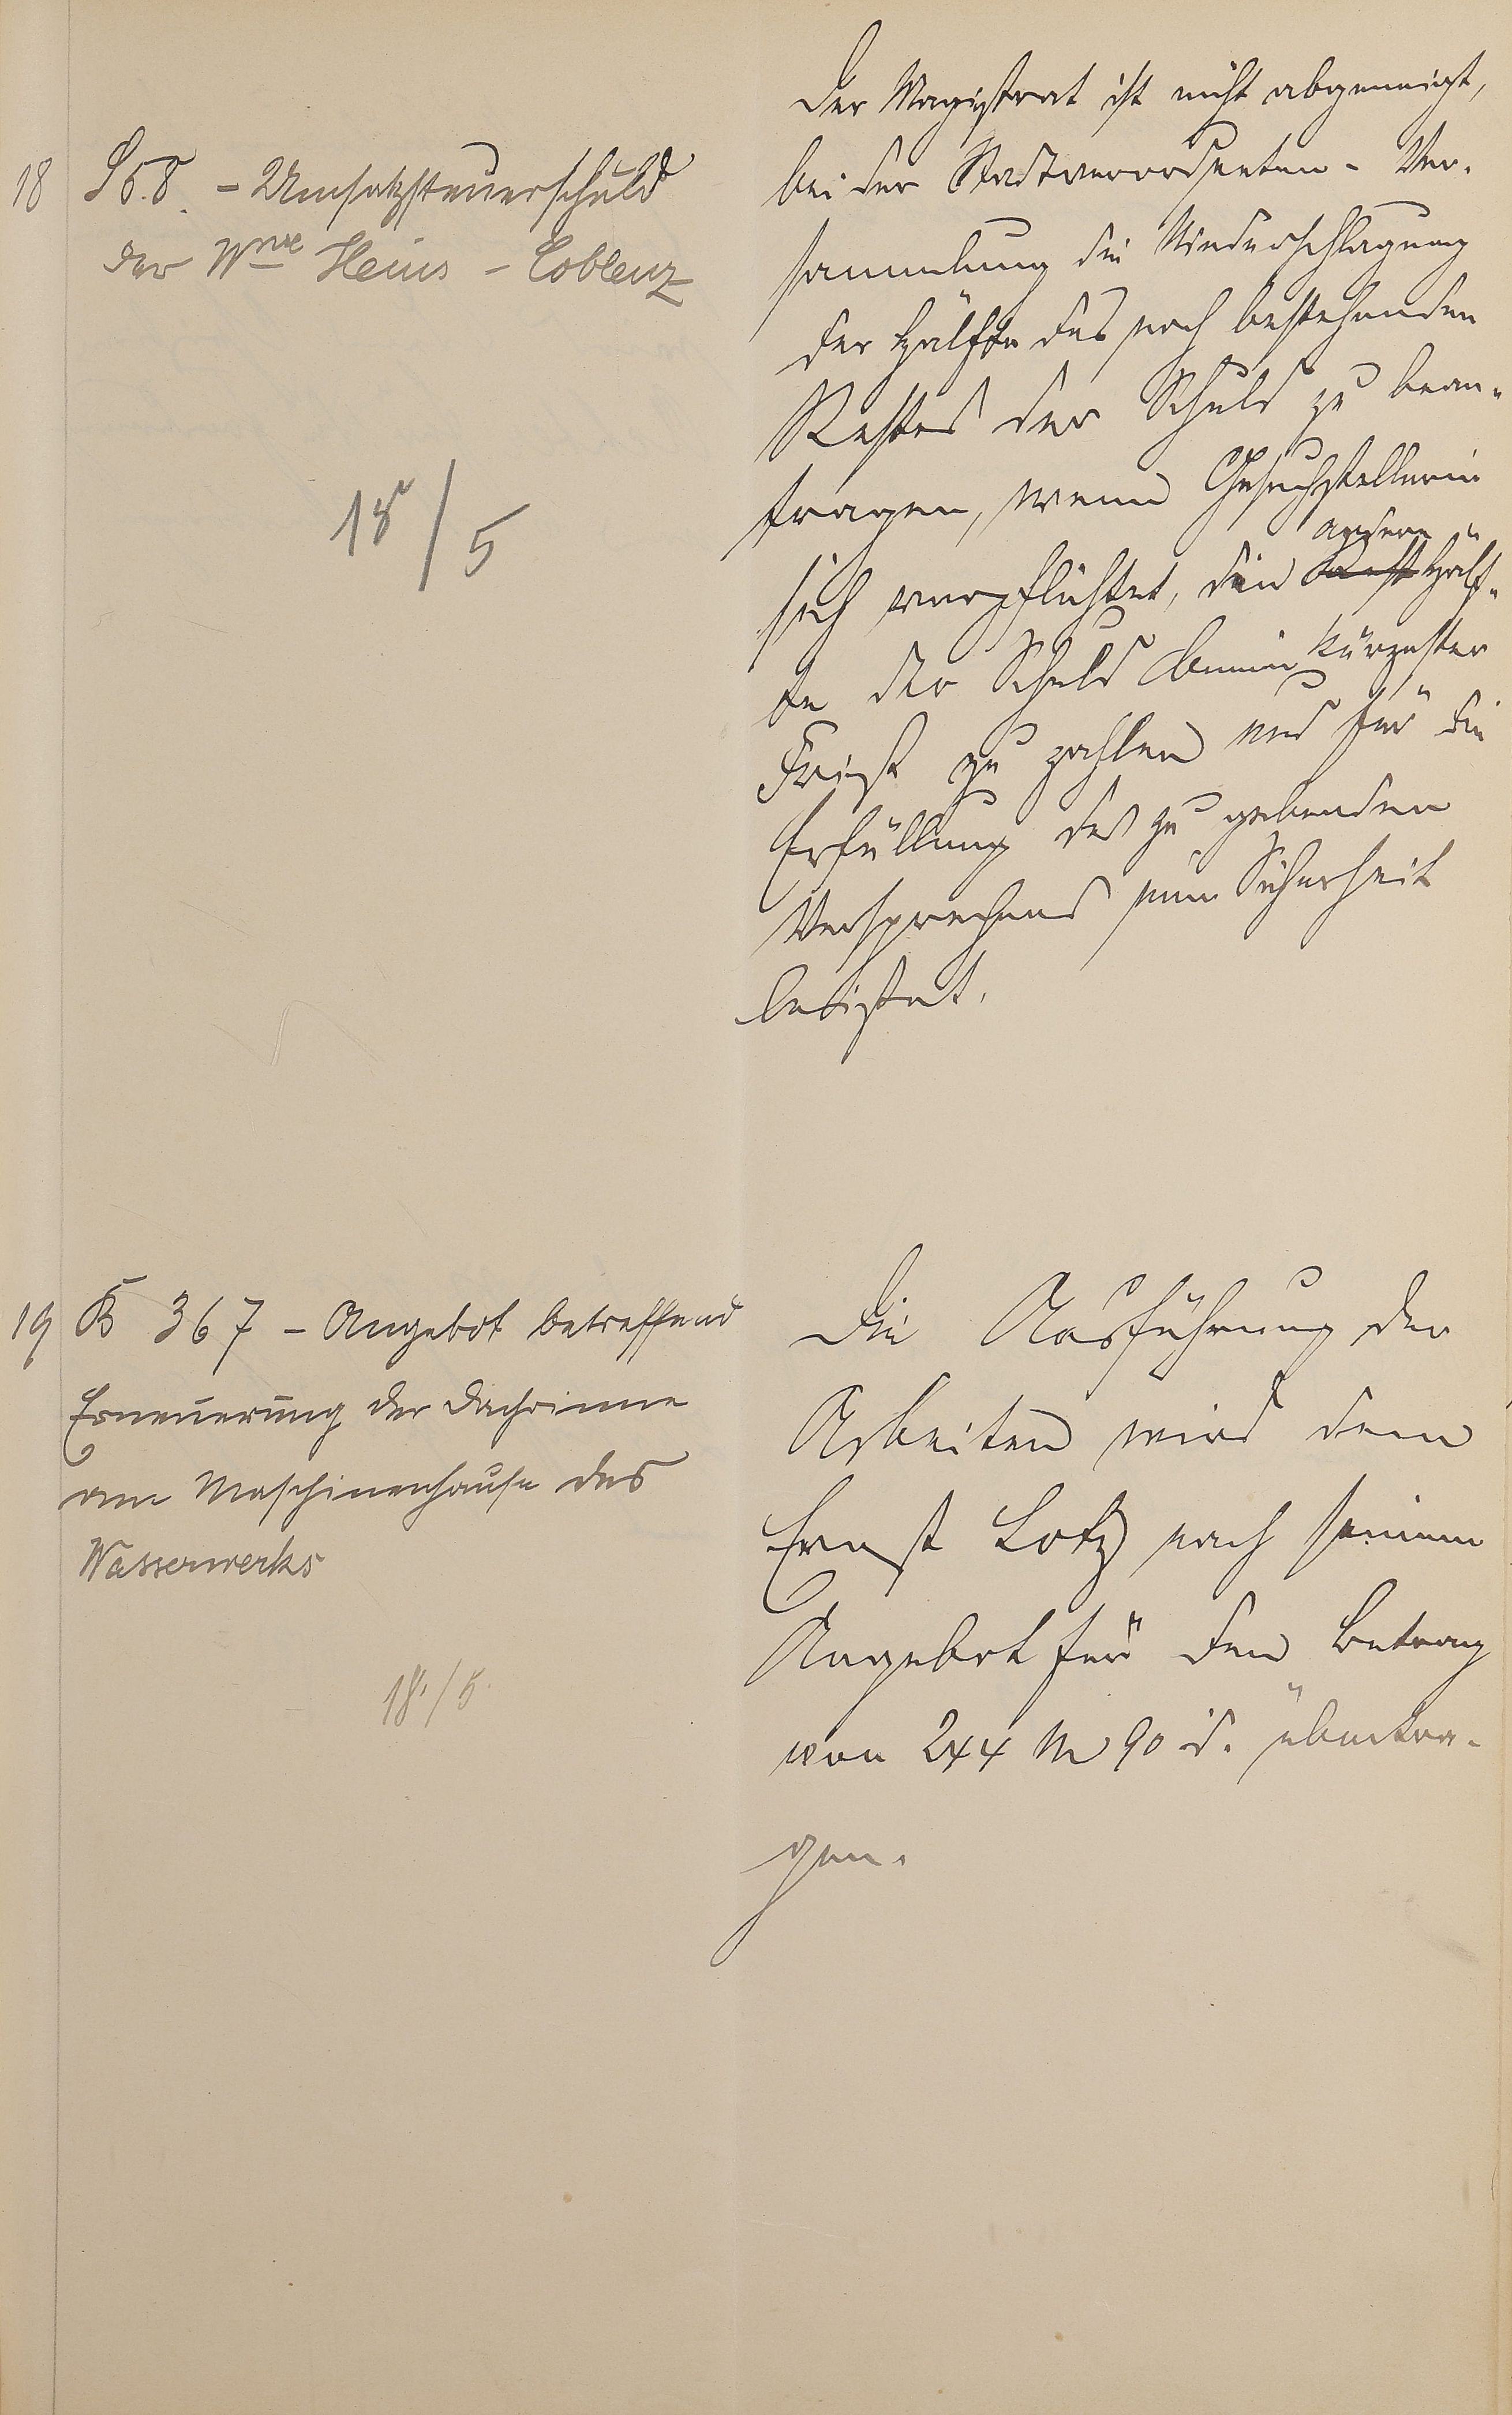 18 S 6.8. - Umsatzsteuerschuld
der Wwe Heins - Coblenz
18/5
Der Magistrat ist nicht abgeneigt,
bei der Stadtverordneten-Ver-
sammlung die Niederschlagung
der Hälfte des noch bestehenden
Restes der Schuld zu bean-
tragen, wenn Gesuchstellerin
sich verpflichtet, die andere Hälf-
te der Schuld binnen kürzester
Frist zu zahlen und für die
Erfüllung des zu gebenden
Versprechens eine Sicherheit
leistet.
19 B 367 - Angebot betreffend
Erneuerung der Dachrinne
am Maschinenhause des
Wasserwerks
18./5.
Die Ausführung der
Arbeiten wird dem
Ernst Lotz nach seinem
Angebot für den Betrag
von 244 M 90 d. übertra-
gen.